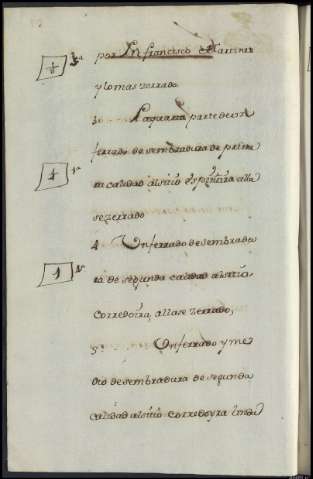 por Dn francisco Martines
y lomas zerrado
3 La quarta parte de un
ferrado de sembradura de prime
ra calidad al sitio
sezerrado
4 Un ferrado de sembradu
ra de segunda calidad al sitio
Corredoira, allase zerrado,
5 Un ferrado y me
dio de sembradura de segunda
calidad al sitio corredoyra linda